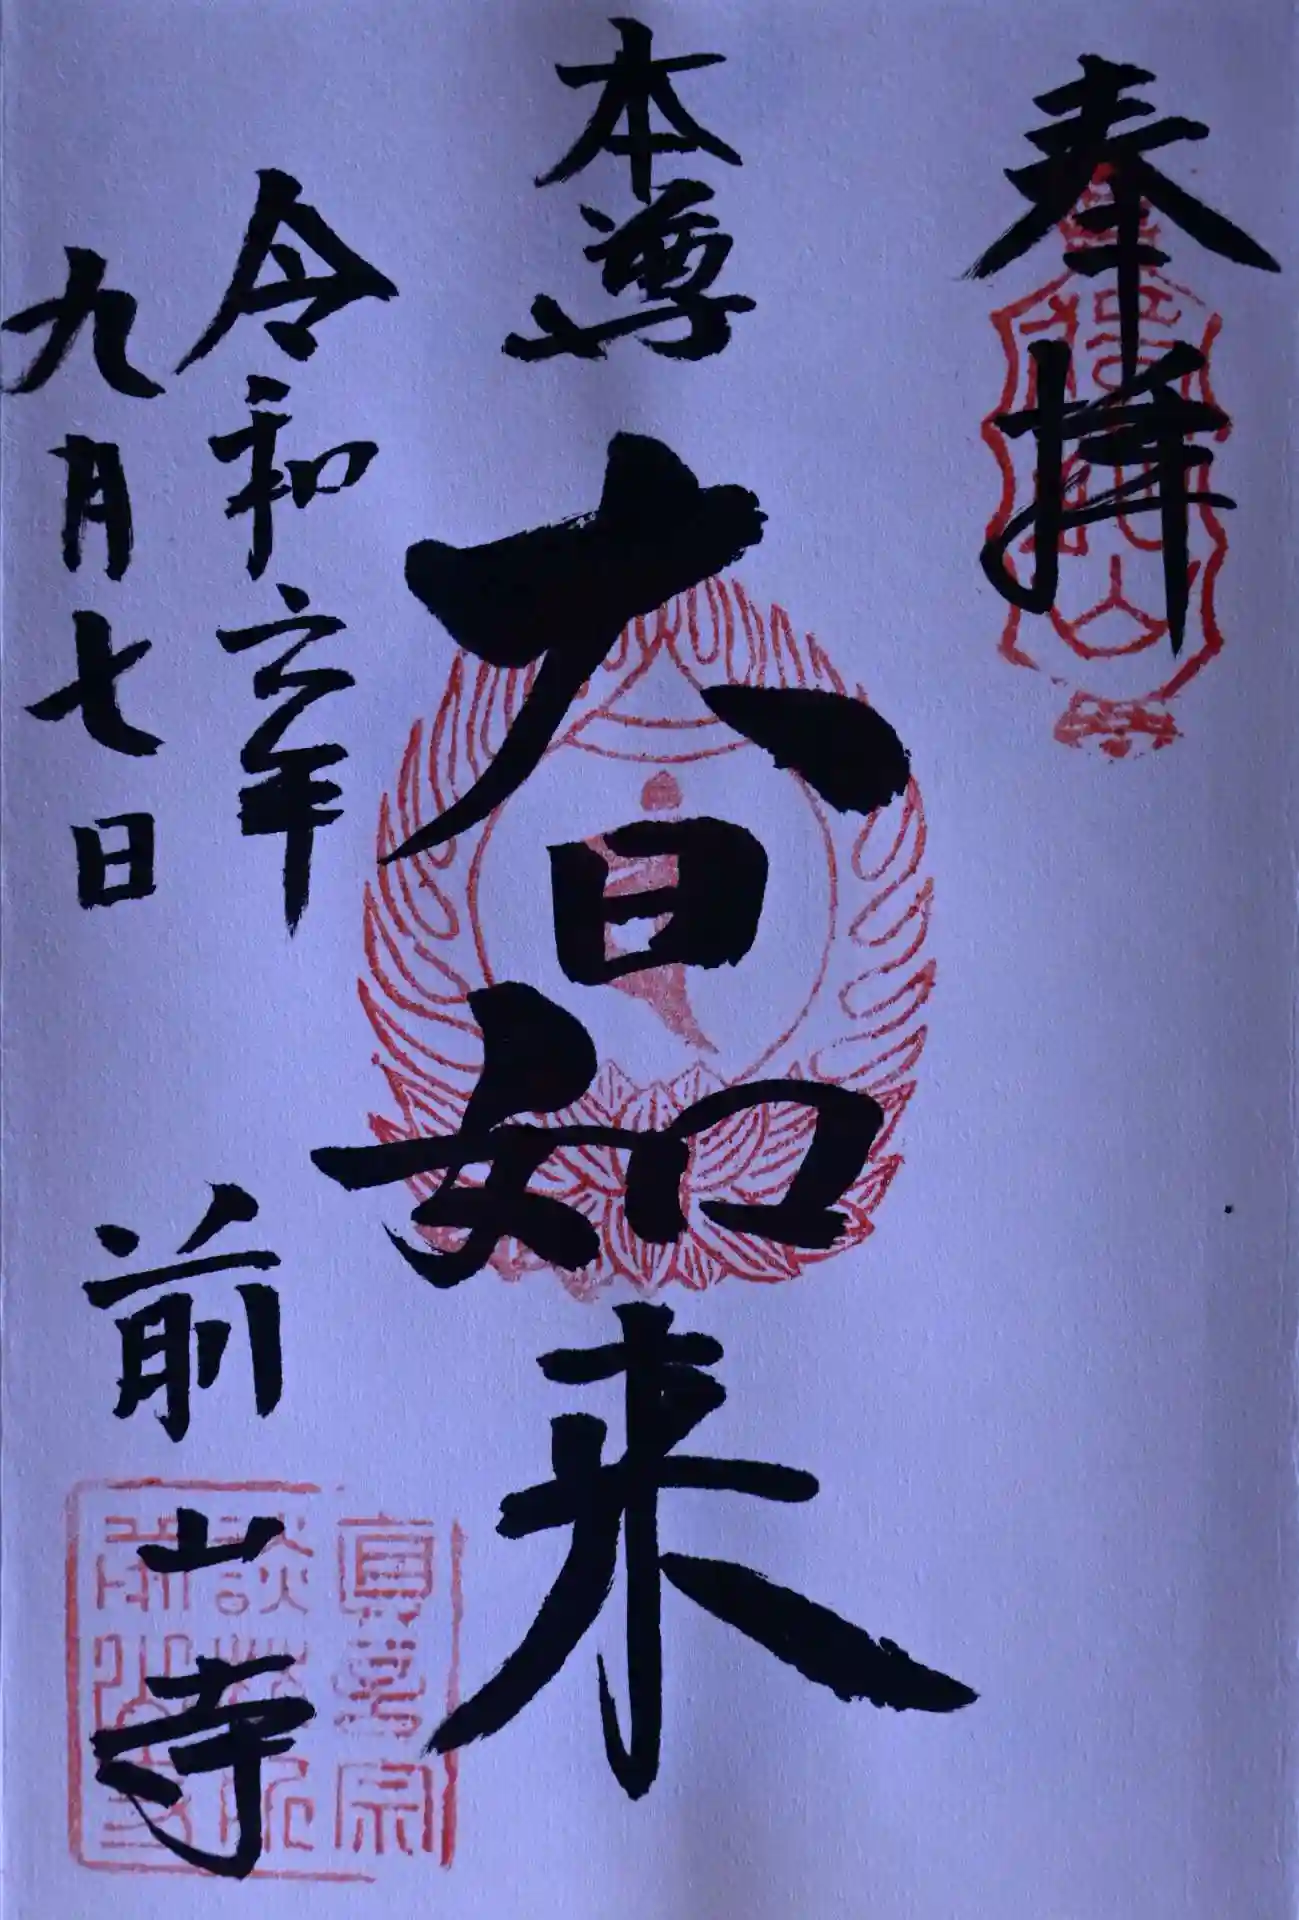 奉拝
本尊
大日如来
令和六年
九月七日
前山寺
真言宗
談林院
前山寺